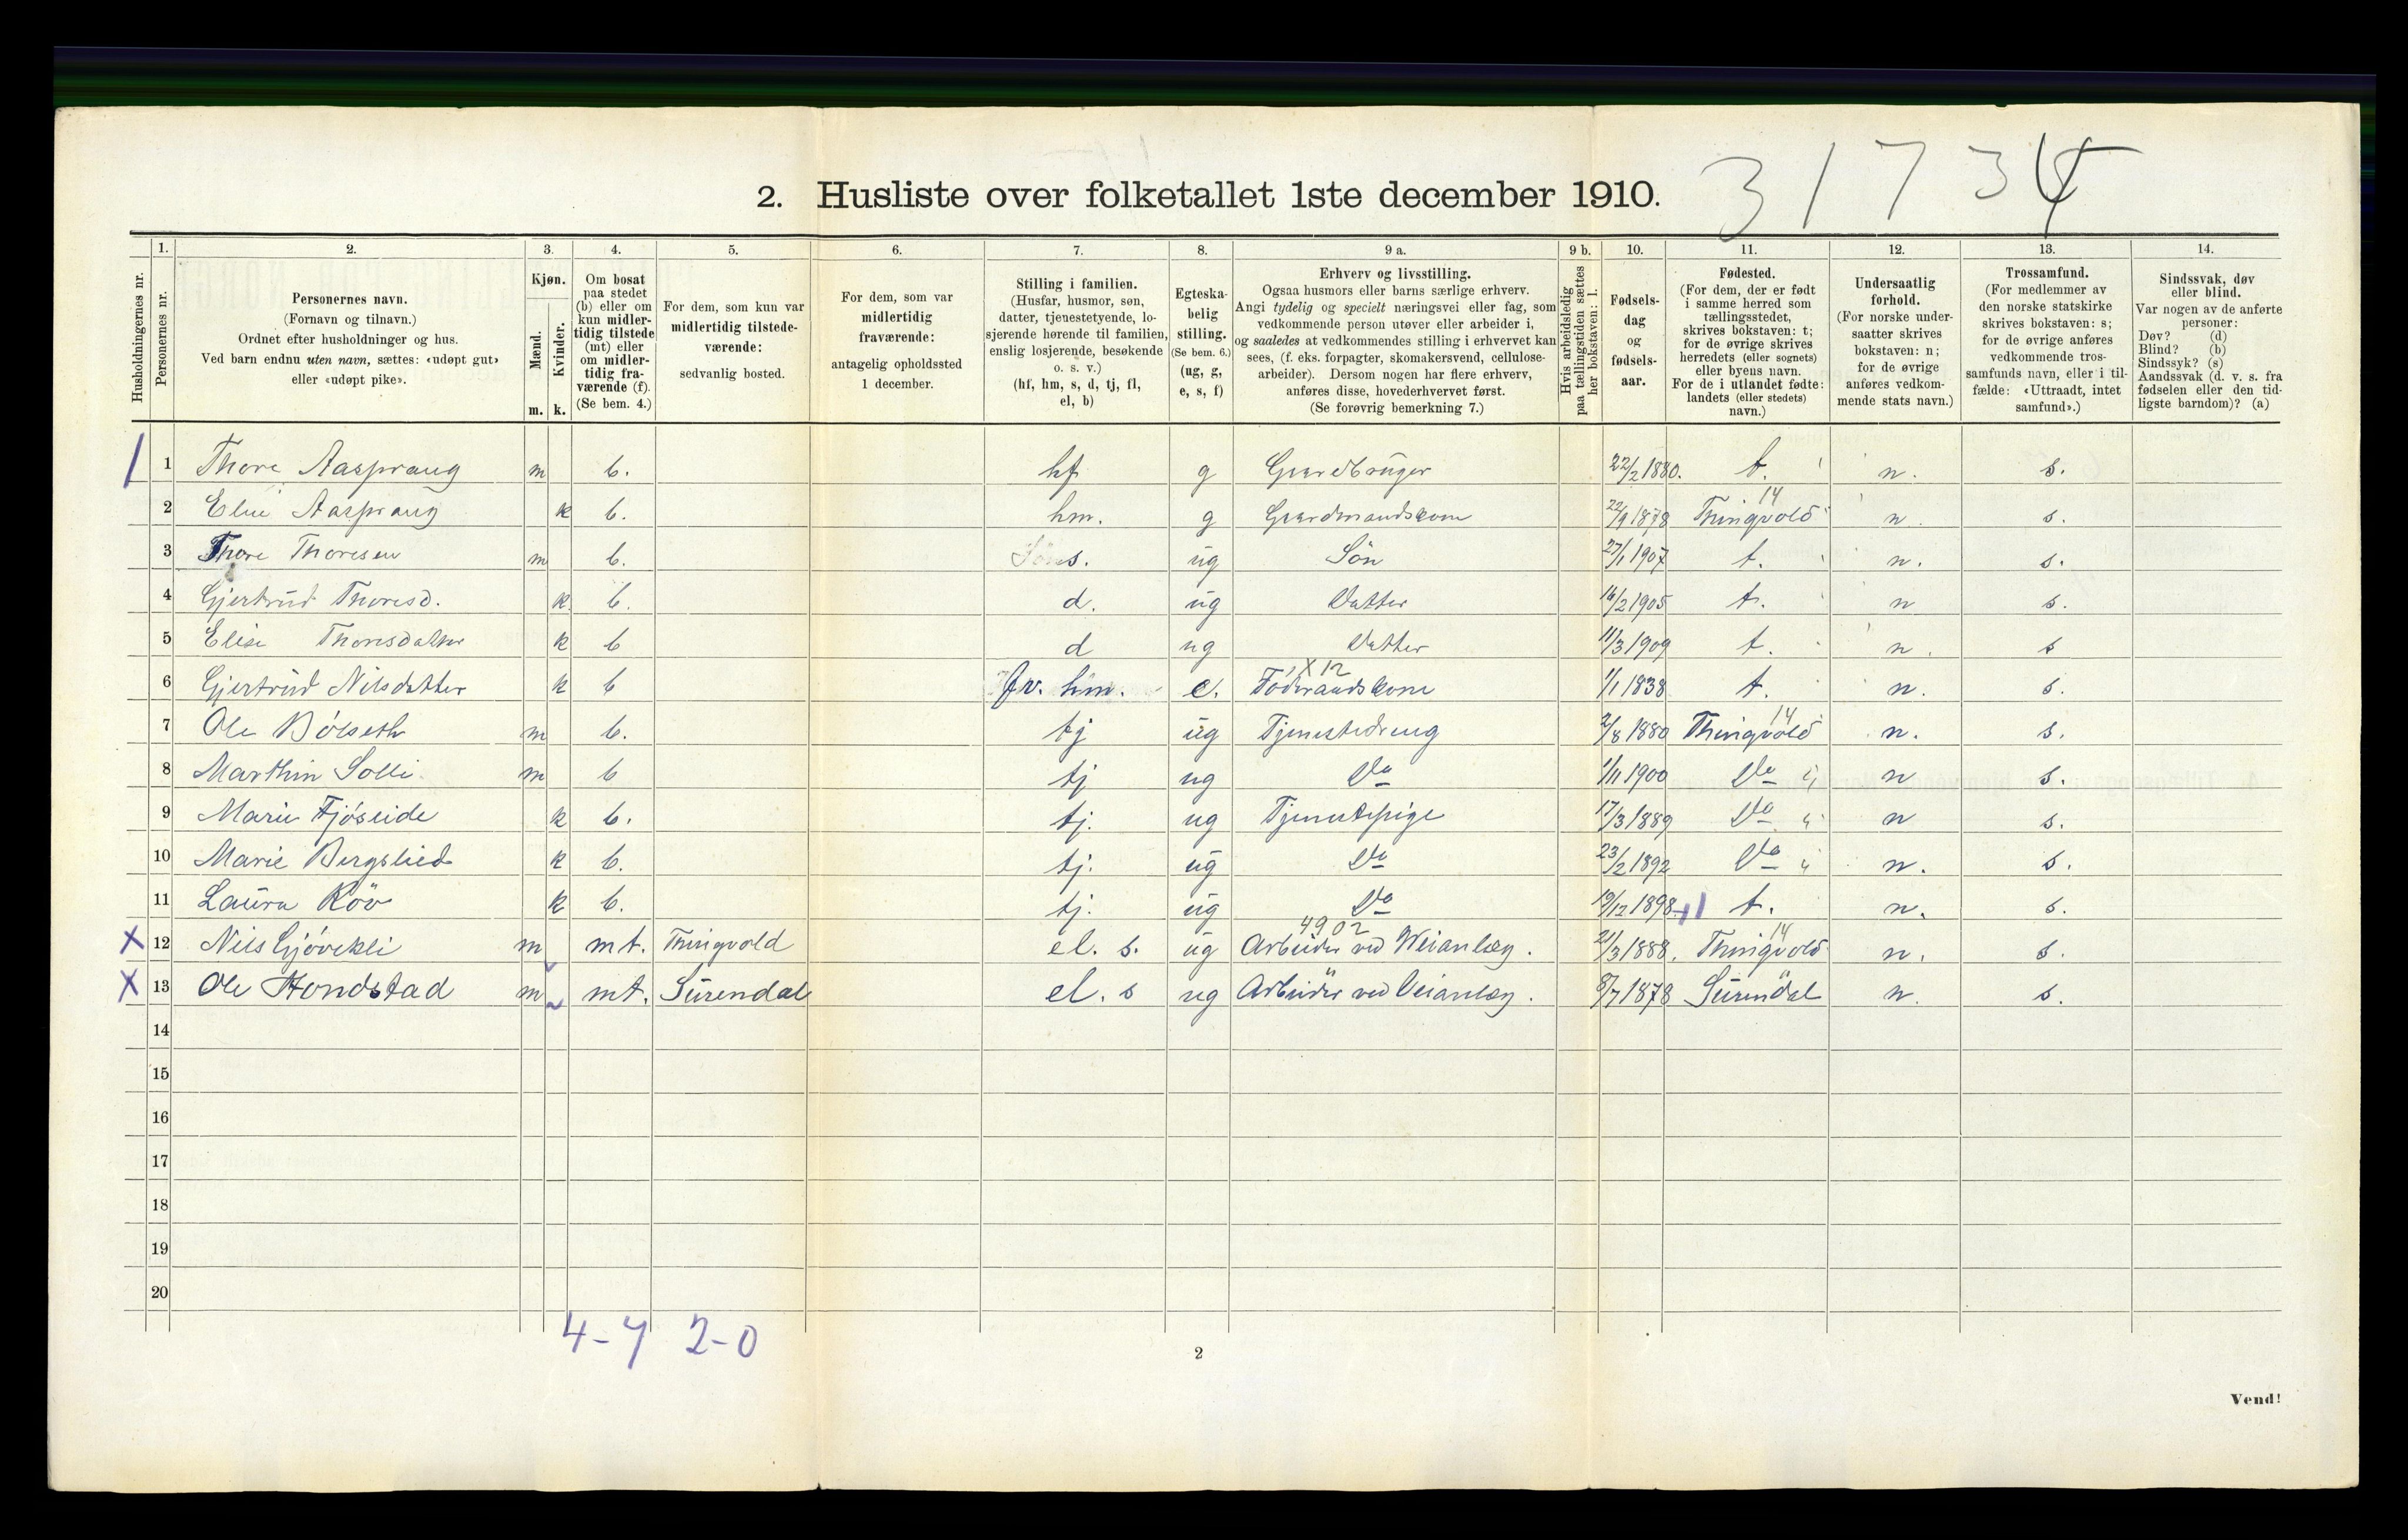 31734
2. Husliste over folketallet 1ste december 1910.
Husholdningernes nr.
1.
Personernes nr.
2.
Personernes navn.
(Fornavn og tilnavn.)
Ordnet efter husholdninger og hus.
Ved barn endnu uten navn, sættes: «udøpt gut»
eller «udøpt pike».
3.
Kjøn.
Mænd.
Kvinder.
m. k.
4.
Om bosat
paa stedet
(b) eller om
kun midler-
tidig tilstede
(mt) eller
om midler-
tidig fra-
værende (f).
(Se bem. 4.)
5.
For dem, som kun var
midlertidig tilstede-
værende:
sedvanlig bosted.
6.
For dem, som var
midlertidig
fraværende:
antagelig opholdssted
1 december.
7.
Stilling i familien.
(Husfar, husmor, søn,
datter, tjenestetyende, lo-
sjerende hørende til familien,
enslig losjerende, besøkende
o. s. v.)
(hf, hm, s, d, tj, fl,
el, b)
8.
Egteska-
belig
stilling.
(Se bem. 6.)
(ug, g,
e, s, f)
9 a.
Erhverv og livsstilling.
Ogsaa husmors eller barns særlige erhverv.
Angi tydelig og specielt næringsvei eller fag, som
vedkommende person utøver eller arbeider i,
og saaledes at vedkommendes stilling i erhvervet kan
sees, (f. eks. forpagter, skomakersvend, cellulose-
arbeider). Dersom nogen har flere erhverv,
anføres disse, hovederhvervet først.
(Se forøvrig bemerkning 7.)
9 b.
Hvis arbeidsledig
paa tællingstiden sættes
her bokstaven: l.
10.
Fødsels-
dag
og
fødsels-
aar.
11.
Fødested.
(For dem, der er født
i samme herred som
tællingsstedet,
skrives bokstaven: t;
for de øvrige skrives
herredets (eller sognets)
eller byens navn.
For de i utlandet fødte:
landets (eller stedets)
navn.)
12.
Undersaatlig
forhold.
(For norske under-
saatter skrives
bokstaven: n;
for de øvrige
anføres vedkom-
mende stats navn.)
13.
Trossamfund.
(For medlemmer av
den norske statskirke
skrives bokstaven: s;
for de øvrige anføres
vedkommende tros-
samfunds navn, eller i til-
fælde: «Uttraadt, intet
samfund».)
14.
Sindssvak, døv
eller blind.
Var nogen av de anførte
personer:
Døv? (d)
Blind? (b)
Sindssyk? (s)
Aandssvak (d. v. s. fra
fødselen eller den tid-
ligste barndom)? (a)
1 Thore Aasprang m b. hf g Gaardbruger 22/2 1880. t. n. s.
14
2 Eline Aasprang k b. hm. g Gaardmandskone 22/9 1878 Thingvold n. s.
3 Thore Thoresen m b. s. ug Sön 27/1 1907 t. n. s.
4 Gjertrud Thoresd. k. b. d. ug Datter 16/2 1905 t. n s.
5 Elise Thoresdatter k b d ug Datter 11/3 1909 t. n. s
X 12
6 Gjertrud Nilsdatter k b fv. hm. e. Föderaadskone 1/1 1838 t. n. s.
14
7 Ole Bölseth m b. tj ug Tjenestedreng 2/8 1880 Thingvold n. s.
8 Marthin Solli m b tj ug Do 1/11 1900 Do n s.
9 Marie Fjöseide k b. tj. ug Tjenestepige 17/3 1889 Do n s.
10 Marie Bergslied k b. tj. ug Do 23/2 1892 Do n. s.
11 Laura Röv k b. tj. ug Do 19/12 1898 t. n. s.
4902 14
X 12 Nils Gjövikli m mt. Thingvold el. s. ug Arbeider ved Weianlæg. 21/3 1888. Thingvold n. s.
X 13 Ole Hondstad m mt. Surendal el. s ug Arbeider ved Veianlæg. 8/7 1878 Surendal n. s.
14
15
16
17
18
19
20
4-7 2-0
2
Vend!